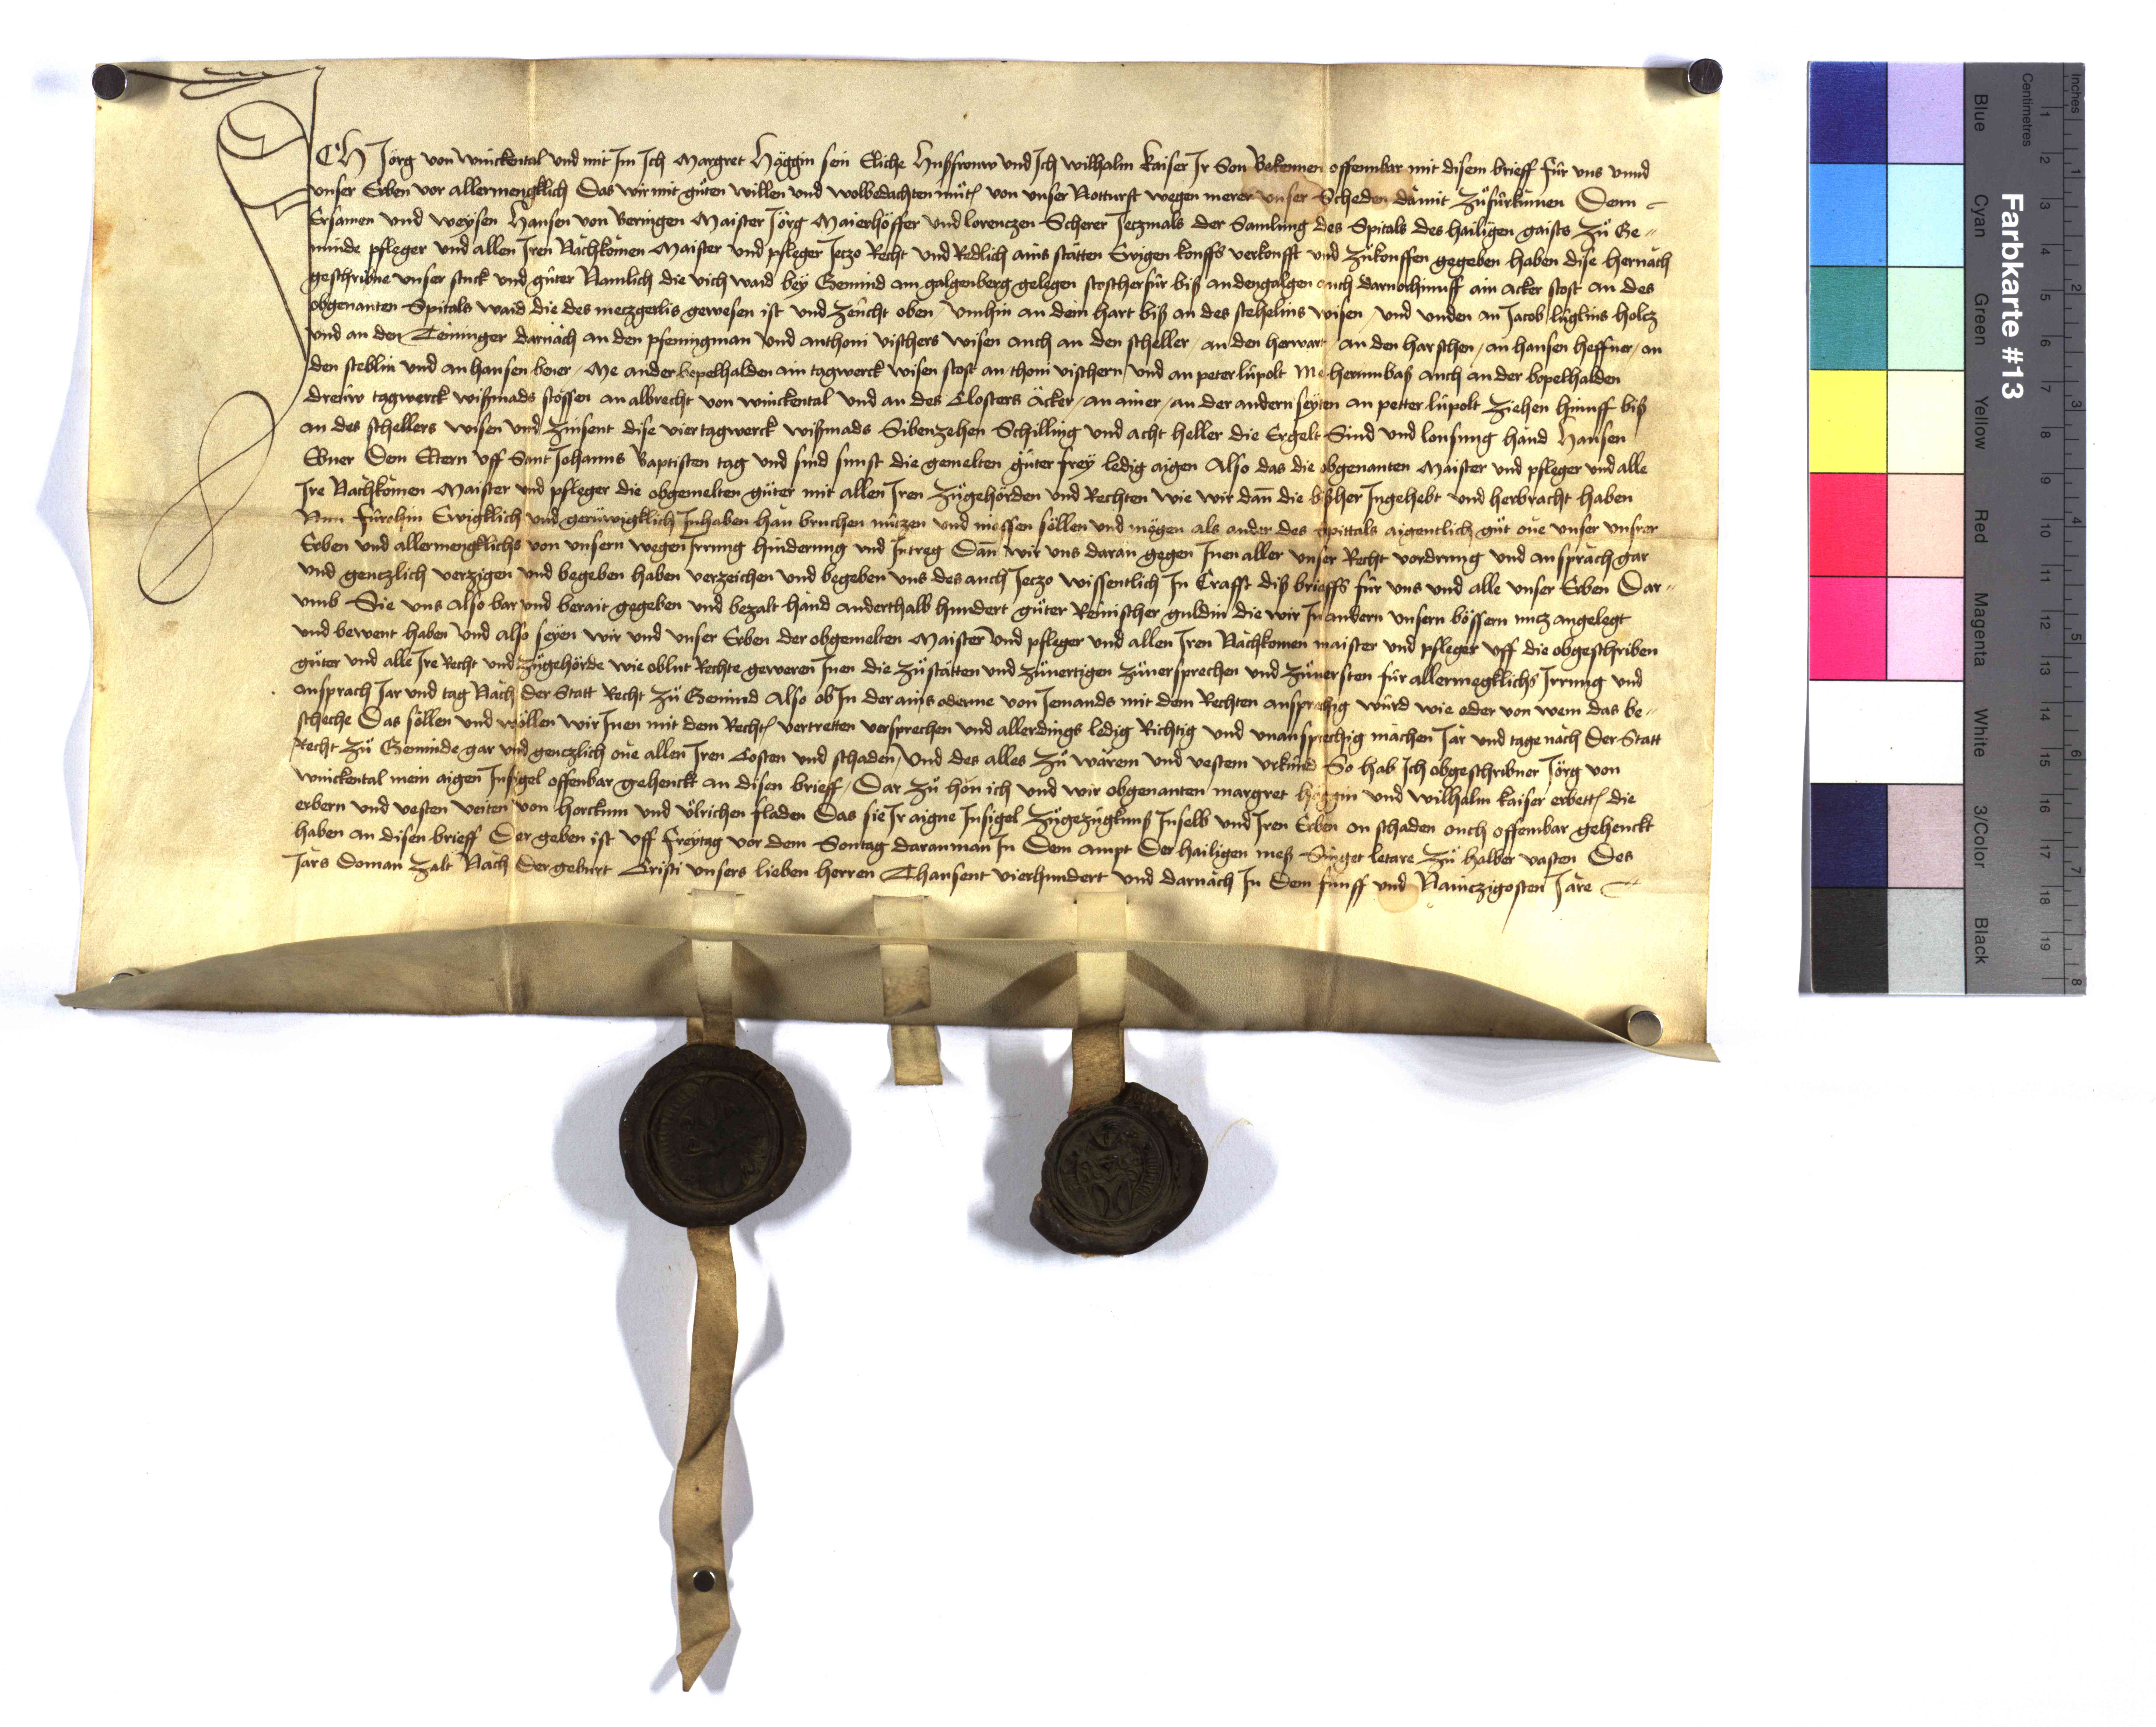 ICH Jörg von winckental und mit Im Ich Margret Häggin sein Eliche Hußfrouw und Ich wilhalm kaiser Ir Son Bekennen offembar mit disem brieff für uns unnd
unser Erben vor allermengklich Das wir mit gůten willen und wolbedachten můt von unser Notturft wegen merer unser Scheden damit zůfürkumen Denn
Ersamen und weysen Hansen von Veringen Maister Jörg Maierhöffer und lorenczen Scherer Jeczmals der Samlung des Spitals des hailigen gaists zů Ge-
münde pfleger und allen Iren Nachkomen Maister und pfleger Jeczo Recht und Redlich ains stätten Ewigen kouffs verkoufft und zůkouffen gegeben haben dise hernach
geschribne unser stuck und gůter Namlich die vich waid bey Gemünd am galgenberg gelegen stoscherfür biß an den galgen ouch darnochinuff ain acker stost an des
obgenanten Spitals waid die des meczgerlis gewesen ist und zeücht oben umhin an dem hart biß an des stehelins wisen und unden an Jacob lüglins holcz
und an den Teininger darnach an den pfenningman und anthoni vischers wisen auch an den scheller an den herwart an den harschen an hansen heffner an
den steblin und an hansen beier Me an der bepelhalden ain tagwerck wisen stost an thoni vischern und an peter lüpolt Me herumbaß auch an der bopelhalden
dreiw tagwerck wißmads stossen an albrecht von winckental und an des Closters Äcker an ainer an der andern seyten an petter lüpolt ziehen hinuff biß
an des schellers wisen und zinsent dise vier tagwerck wißmads Sibenzehen Schilling und acht heller die Ergelt Sind und lonsung hand Hansen
Ebner Dem Eltern uff Sant Johanns Baptisten tag und sind sunst die gemelten gůter frey ledig aigen Also das die obgenanten Maister und pfleger und alle
Ire Nachkomen Maister und pfleger die obgemelten güter mit allen Iren zůgehörden und Rechten wie wir dan die bißher Ingehebt und herbracht haben
Nun fürohin Ewigklich und gerüwigklich Inhaben han bruchen nüczen und niessen söllen und mögen als ander des spittals aigentlich gůt one unser unsrer
Erben und allermengklichs von unsern wegen Irrung hinderung und Intreg Dan wir uns daran gegen Inen aller unser Recht vordrung und ansprach gar
und genczlich verzigen und begeben haben verzeichen und begeben uns des auch Jeczo wissentlich In Crafft diß brieffs für uns und alle unser Erben Dar-
umb Sie uns also bar und berait gegeben und bezalt hand anderthalb hundert gůter Reinischer guldin die wir In andern unsern bössern nucz angelegt
und bewent haben und also seyen wir und unser Erben der obgemelten Maister und pfleger und allen Iren Nachkomen maister und pfleger uff die obgeschriben
gůter und alle Ire Recht und zůgehörde wie oblut Rechte geweren Inen die zůstätten und zůuertigen zůuersprechen und zůuersten für allermegklichs Irrung und
ansprach Jar und tag Nach Der Statt Recht zů Gemünd Also ob In der ains oderme von Jemands mit dem Rechten ansprechig würd wie oder von wem das be-
scheche Das söllen und wöllen wir Inen mit dem Recht vertretten versprechen und allerdings ledig Richtig und unansprechig machen Jar und tage nach Der Statt
Recht zů Gemünde gar und genczlich one allen Iren Costen und schaden Und des alles zů warem und vestem urkünd So hab Ich obgeschribner Jörg von
winckental mein aigen Insigel offenbar gehenckt an disen brieff Dar zů hon ich und wir obgenanten margret häggin und wilhalm kaiser erbett die
erbern und vesten veiten von horckum und ůlrichen fladen Das sie Ir aigne Insigel zůgezügknuß Inselb und Iren Erben on schaden ouch offembar gehenckt
haben an disen brieff Der geben ist uff freytag vor dem Sontag daranman In Dem ampt Der hailigen meß Singet letare zů halber vasten Des
Jars Doman zalt Nach Der geburt Cristi unsers lieben herren Thausent vierhundert und darnach In Dem fünff und Nainczigosten Jare
Farbkarte #13
Blue
Cyan
Green
Yellow
Red
Magenta
White
3/Color
Black
Centimetres
1
2
3
4
5
6
7
8
9
10
11
12
13
14
15
16
17
18
19
Inches
1
2
3
4
5
6
7
8